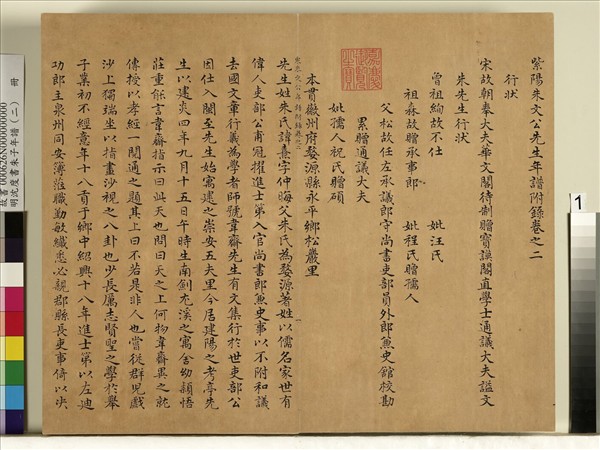 紫陽朱文公先生年譜附錄卷之二
行狀
宋故朝奉大夫華文閣待制贈寶謨閣直學士通議大夫謚文
朱先生行狀
曾祖絢故不仕 妣汪氏
祖森故贈承事郎 妣程氏贈孺人
父松故任左承議郎守尚書吏部員外郎兼史館校勘
累贈通議大夫
妣孺人祝氏贈碩
本貫徽州府婺源縣永平鄉松巖里
先生姓朱氏諱熹字仲晦父朱氏為婺源著姓以儒名家世有
偉人吏部公甫冠擢進士第入官尚書郎兼史事以不附和議
去國文章行義為學者師號韋齋先生有文集行於世吏部公
因仕入閩至先生始寓建之崇安五夫里今居建陽之考亭先
生以建炎四年九月十五日午時生南劍尤溪之寓舍幼穎悟
莊重能言韋齋指示曰此天也問曰天之上何物韋齋異之就
傅授以孝經一閱通之題其上曰不若是非人也嘗從群兒戲
沙上獨端坐以指畫沙視之八卦也少長厲志聖賢之學於舉
子業初不經意年十八貢于鄉中紹興十八年進士第以左迪
功郎主泉州同安簿蒞職勤敏纖悉必親郡縣長吏事倚以决
故書 000626N000000000
明沈度書朱子年譜(二) 冊
1